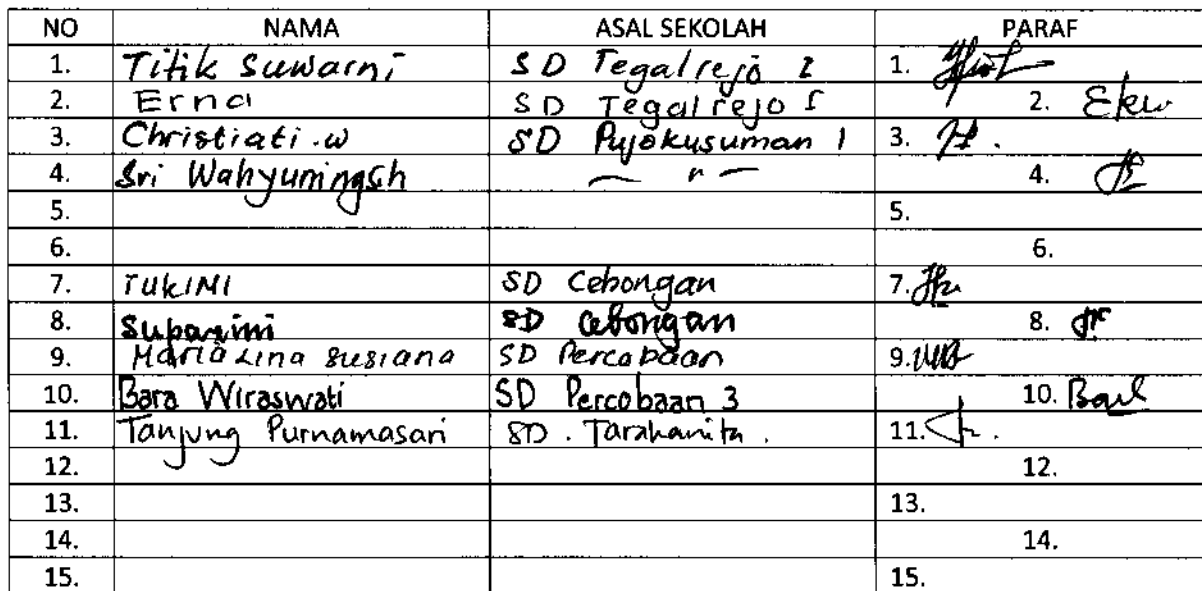 NO NAMA ASAL SEKOLAH PARAF
1. Titik Suwarni SD Tegalrejo 1.
2. Erna SD Tegalrejo 2.
3. Christiati .w SD Pujokusuman 1 3.
4. Sri Wahyuningsih — " — 4.
5. 5.
6. 6.
7. TUKINI SD Cebongan 7.
8. Suparimi SD Cebongan 8.
9. Maria Lina Susiana SD Percobaan 9.
10. Bara Wiraswati SD Percobaan 3 10.
11. Tanjung Purnamasari SD . Tarakanita . 11.
12. 12.
13. 13.
14. 14.
15. 15.